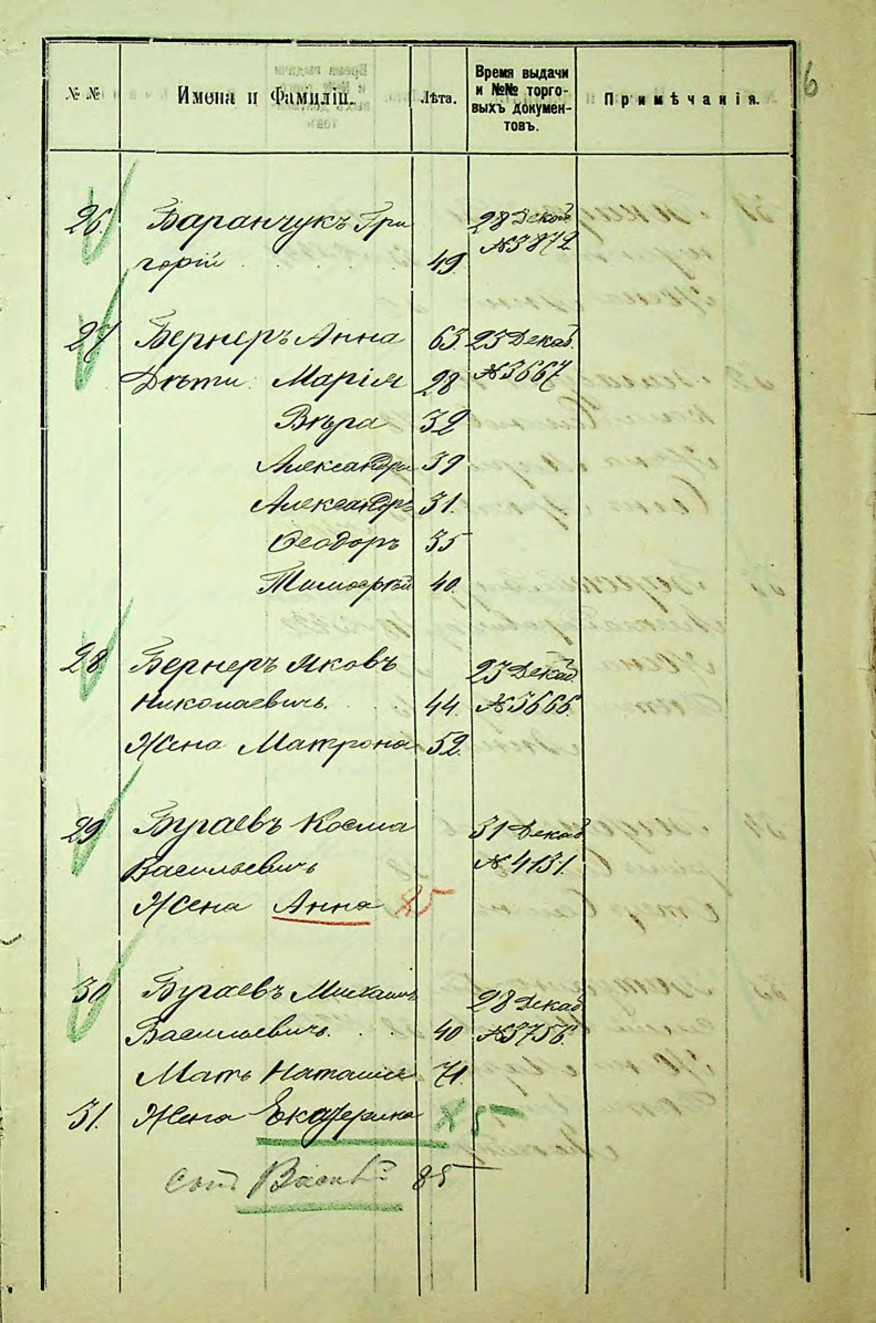 6
№ № Имена и Фамиліи. Лѣта. Время выдачи и №№ торговыхъ документовъ. Примѣчанія.
26. Баранчукъ Гри 28 Декаб.
горій 49 №3872
27 Бернеръ Анна 63 23 Декаб.
Дѣти: Марія 28 №3667
Вѣра 32
Александра 39
Александръ 31.
Ѳеодоръ 35
Тимоѳей 40.
28 Бернеръ Яковъ 23 Декаб
Николаевичъ. 44. №3666.
Жена Матрона 52.
29 Бугаевъ Косма 31 Декаб
Васильевичъ №4131.
Жена Анна
30 Бугаевъ Михаилъ 28 Декаб
Васильевичъ. 40 №3756.
Мать Наталія 71.
31. Жена Екатерина
85